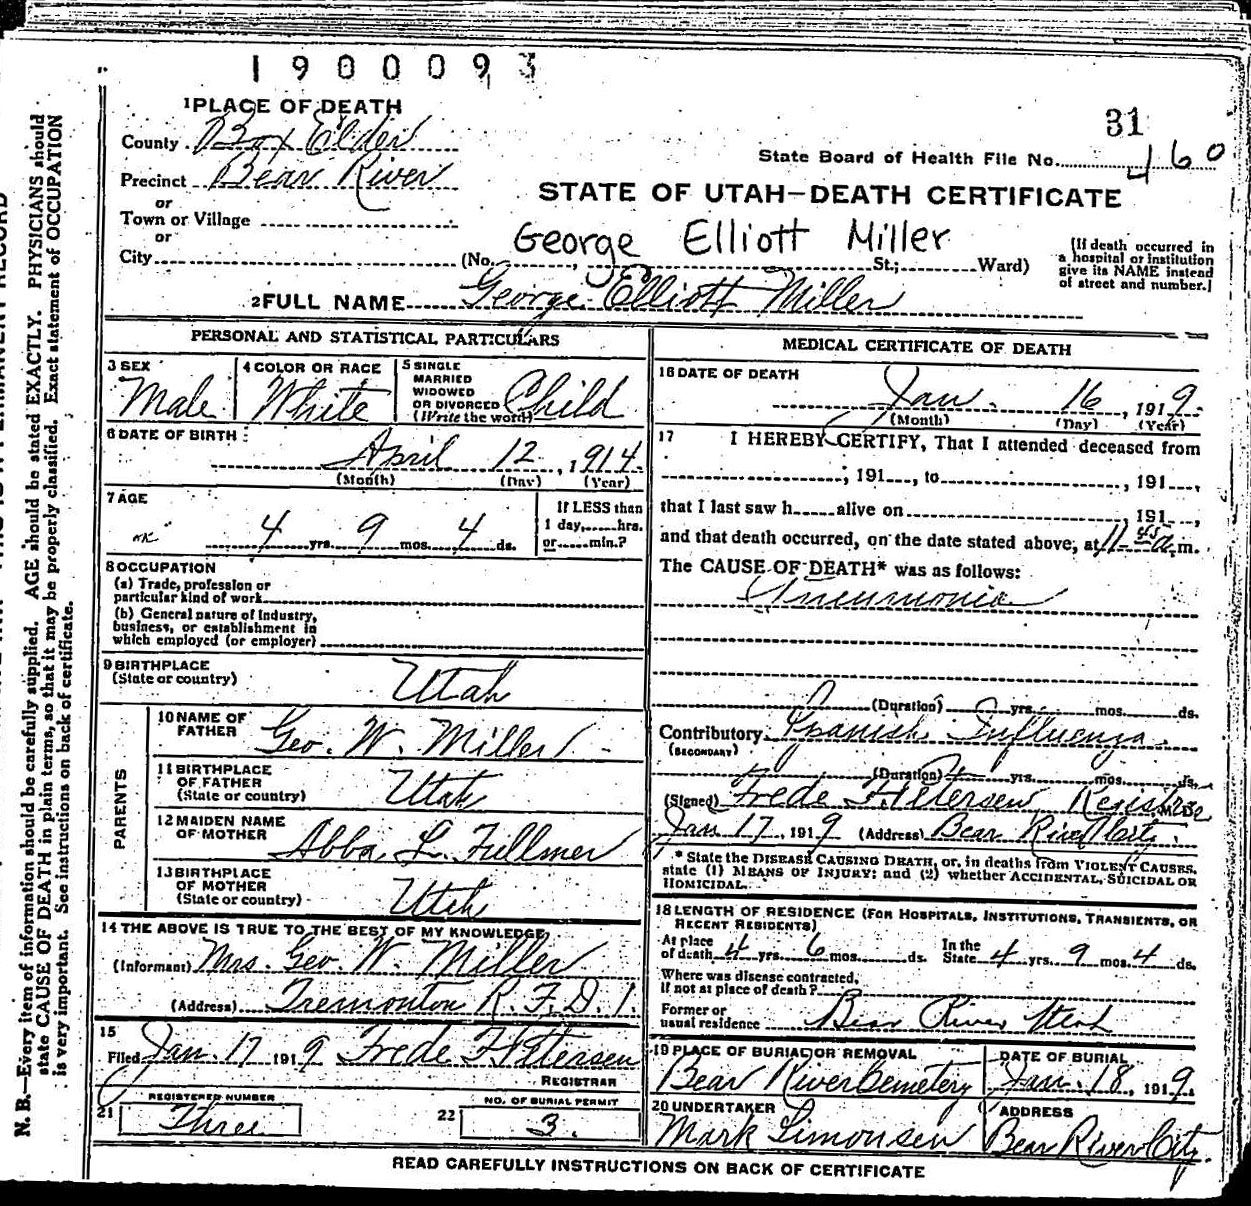 1900093
31
1 PLACE OF DEATH
County Box Elder
State Board of Health File No. 160
Precinct Bear River
or
STATE OF UTAH—DEATH CERTIFICATE
Town or Village
or
George Elliott Miller
City (No. St.; Ward)
[If death occurred in
a hospital or institution
give its NAME instead
of street and number.]
2 FULL NAME George Elliott Miller
PERSONAL AND STATISTICAL PARTICULARS
3 SEX
Male
4 COLOR OR RACE
White
5 SINGLE
MARRIED
WIDOWED
OR DIVORCED
(Write the word)
Child
6 DATE OF BIRTH
April 12, 1914.
(Month) (Day) (Year)
7 AGE
4 yrs. 9 mos. 4 ds.
If LESS than
1 day, hrs.
or min.?
8 OCCUPATION
(a) Trade, profession or
particular kind of work
(b) General nature of Industry,
business, or establishment in
which employed (or employer)
9 BIRTHPLACE
(State or country)
Utah
PARENTS
10 NAME OF
FATHER
Geo. W. Miller
11 BIRTHPLACE
OF FATHER
(State or country)
Utah
12 MAIDEN NAME
OF MOTHER
Abba L. Fullmer
13 BIRTHPLACE
OF MOTHER
(State or country)
Utah
14 THE ABOVE IS TRUE TO THE BEST OF MY KNOWLEDGE
(Informant) Mrs. Geo. W. Miller
(Address) Tremonton R. F. D. 1.
15
Filed Jan. 17 1919 Frede F Petersen
REGISTRAR
REGISTERED NUMBER
21 Three
NO. OF BURIAL PERMIT
22 3.
MEDICAL CERTIFICATE OF DEATH
16 DATE OF DEATH
Jan. 16, 1919.
(Month) (Day) (Year)
17 I HEREBY CERTIFY, That I attended deceased from
; 191 , to , 191 ,
that I last saw h alive on 191 ,
and that death occurred, on the date stated above, at 11-45 a.m.
The CAUSE OF DEATH* was as follows:
Pneumonia
(Duration) yrs. mos. ds.
Contributory Spanish Influenza.
(SECONDARY)
(Duration) yrs. mos. ds.
(Signed) Frede F Petersen, Registrar
Jan 17, 1919 (Address) Bear River City.
* State the DISEASE CAUSING DEATH, or, in deaths from VIOLENT CAUSES,
state (1) MEANS OF INJURY; and (2) whether ACCIDENTAL, SUICIDAL OR
HOMICIDAL.
18 LENGTH OF RESIDENCE (FOR HOSPITALS, INSTITUTIONS, TRANSIENTS, OR
RECENT RESIDENTS)
At place
of death 4 yrs. 6 mos. ds.
In the
State 4 yrs. 9 mos. 4 ds.
Where was disease contracted,
if not at place of death?
Former or
usual residence Bear River Utah
19 PLACE OF BURIAL OR REMOVAL
Bear River Cemetery
DATE OF BURIAL
Jan. 18, 1919.
20 UNDERTAKER
Mark Simonsen
ADDRESS
Bear River City.
READ CAREFULLY INSTRUCTIONS ON BACK OF CERTIFICATE
N. B.—Every item of information should be carefully supplied. AGE should be stated EXACTLY. PHYSICIANS should
state CAUSE OF DEATH in plain terms, so that it may be properly classified. Exact statement of OCCUPATION
is very important. See instructions on back of certificate.